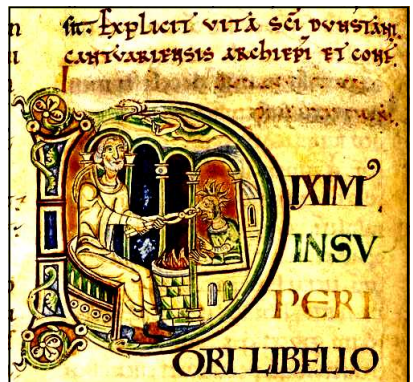 sit. Explicit vita sci dunstani
cantvariensis archiepi et conf.
DIXIM
INSV
PERI
ORI LIBELLO